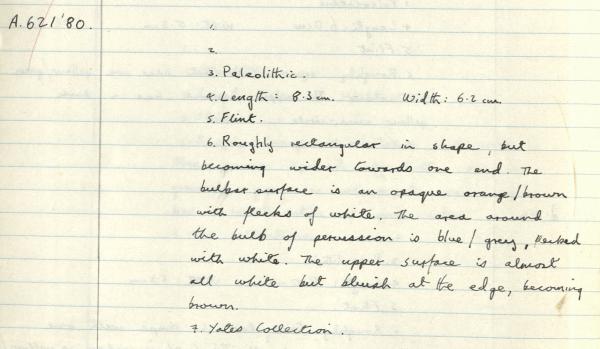 A.621'80.
1.
2.
3. Paleolithic.
4. Length: 8.3 cm. Width: 6.2 cm.
5. Flint.
6. Roughly rectangular in shape, but
becoming wider towards one end. The
bulbar surface is an opaque orange/brown
with flecks of white. The area around
the bulb of percussion is blue/grey, flecked
with white. The upper surface is almost
all white but bluish at the edge, becoming
brown.
7. Yates Collection.